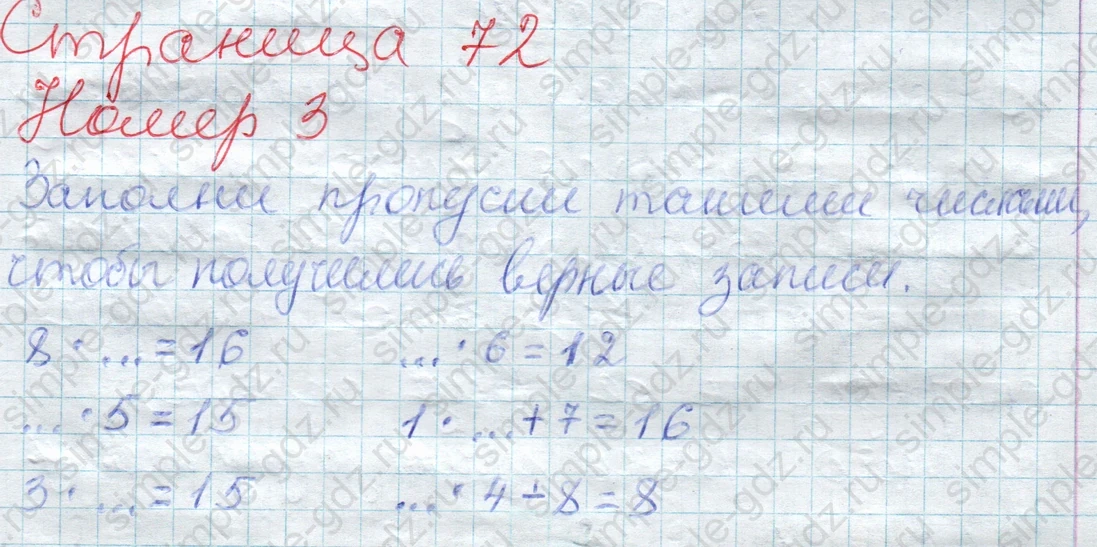 Страница 72
Номер 3
Заполни пропуски такими числами,
чтобы получились верные записи.
8 · ... = 16 ... · 6 = 12
... · 5 = 15 1 · ... + 7 = 16
3 · ... = 15 ... · 4 + 8 = 8
simple-gdz.ru